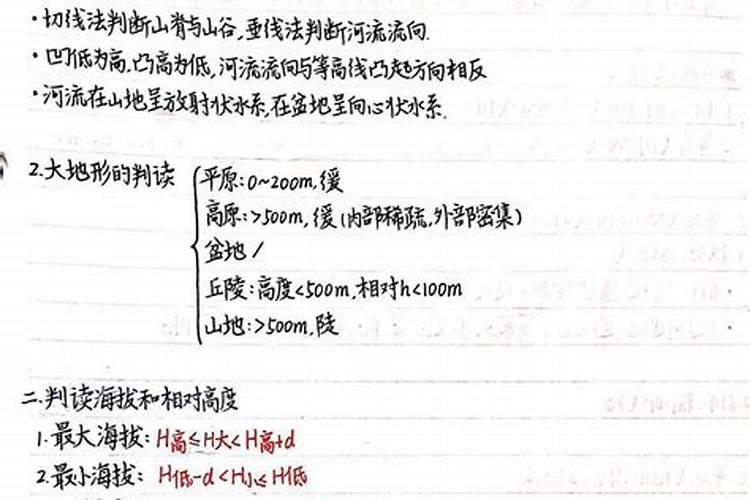 ·切线法判断山脊与山谷,垂线法判断河流流向.
·凹低为高,凸高为低,河流流向与等高线凸起方向相反
·河流在山地呈放射状水系,在盆地呈向心状水系.
2.大地形的判读
平原:0~200m,缓
高原:>500m,缓(内部稀疏,外部密集)
盆地/
丘陵:高度<500m,相对h<100m
山地:>500m,陡
二.判读海拔和相对高度
1.最大海拔:H高≤H大<H高+d
2.最小海拔:H低-d<H小≤H低